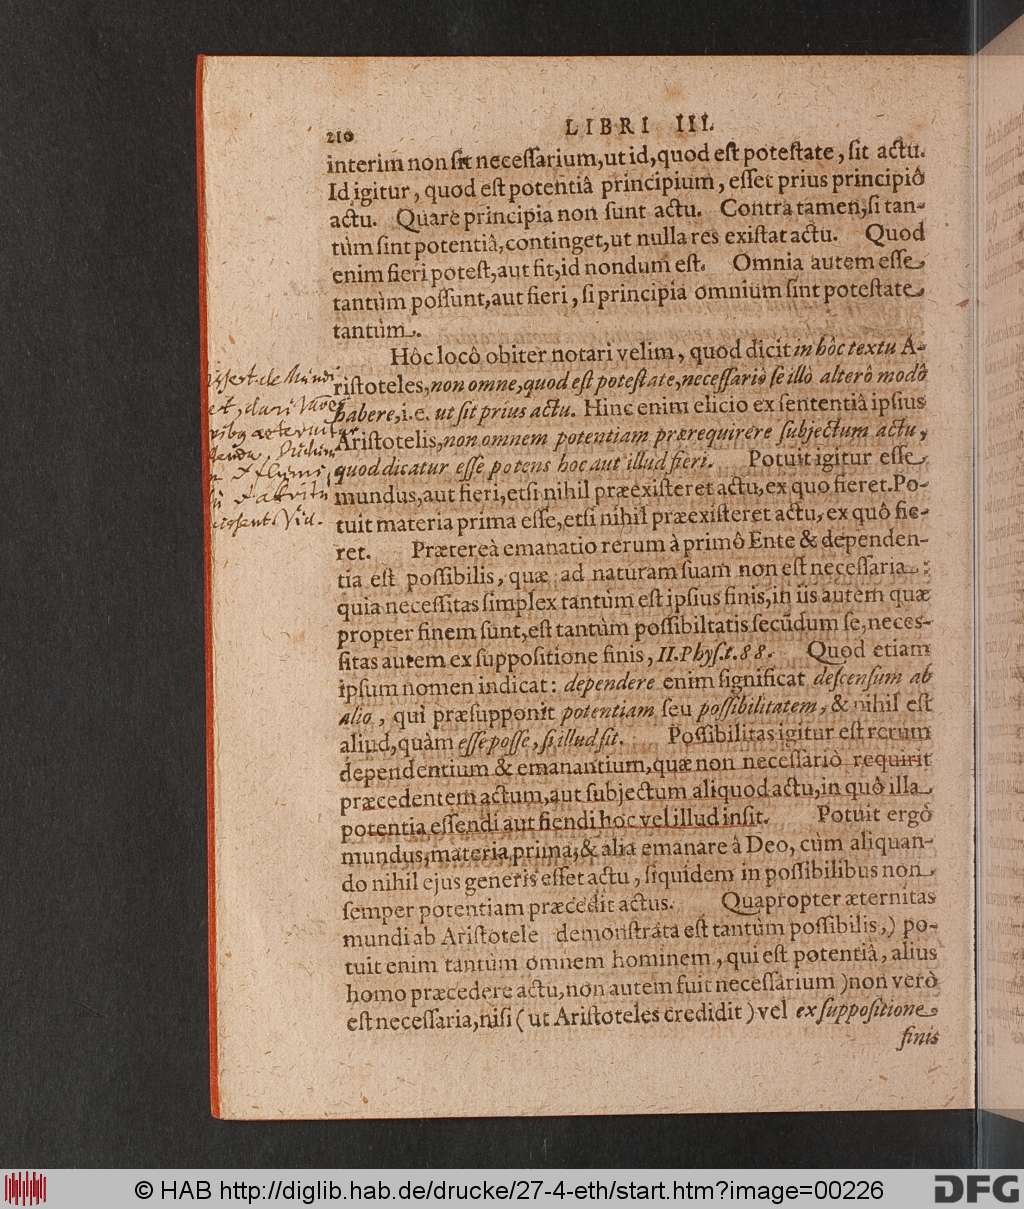 210
LIBRI III.
interim non ſit neceſſarium, ut id, quod eſt poteſtate, ſit actu.
Id igitur, quod eſt potentiâ principium, eſſet prius principiô
actu. Quare principia non ſunt actu. Contra tamen, ſi tan-
tùm ſint potentiâ, continget, ut nulla res exiſtat actu. Quod
enim fieri poteſt, aut fit, id nondum eſt. Omnia autem eſſe
tantùm poſſunt, aut fieri, ſi principia omnium ſint poteſtate
tantùm.
Hôc locô obiter notari velim, quod dicit in hôc textu A-
riſtoteles, non omne, quod eſt poteſtate, neceſſariò ſe illô alterô modô
habere, i.e. ut ſit prius actu. Hinc enim elicio ex ſententiâ ipſius
Ariſtotelis, non omnem potentiam prærequirere ſubjectum actu,
quod dicatur eſſe potens hoc aut illud fieri. Potuit igitur eſſe
mundus, aut fieri, etſi nihil præexiſteret actu, ex quo fieret. Po-
tuit materia prima eſſe, etſi nihil præexiſteret actu, ex quô fie-
ret. Prætereà emanatio rerum à primô Ente & dependen-
tia eſt poſſibilis, quæ ad naturam ſuam non eſt neceſſaria:
quia neceſſitas ſimplex tantùm eſt ipſius finis, in iis autem quæ
propter finem ſunt, eſt tantùm poſſibiltatis ſecũdum ſe, neces-
ſitas autem ex ſuppoſitione finis, II. Phyſ. t. 88. Quod etiam
ipſum nomen indicat: dependere enim ſignificat deſcenſum ab
alio, qui præſupponit potentiam ſeu poſſibilitatem, & nihil eſt
aliud, quàm eſſe poſſe, ſi illud ſit. Poſſibilitas igitur eſt rerum
dependentium & emanantium, quæ non neceſſariò requirit
præcedentem actum, aut ſubjectum aliquod actu, in quô illa
potentia eſſendi aut fiendi hoc vel illud inſit. Potuit ergò
mundus, materia prima, & alia emanare à Deo, cùm aliquan-
do nihil ejus generis eſſet actu, ſiquidem in poſſibilibus non
ſemper potentiam præcedit actus. Quapropter æternitas
mundi ab Ariſtotele demonſtrata eſt tantùm poſſibilis, ) po-
tuit enim tantùm omnem hominem, qui eſt potentiâ, alius
homo præcedere actu, non autem fuit neceſſarium ) non verò
eſt neceſſaria, niſi ( ut Ariſtoteles credidit ) vel ex ſuppoſitione
finis
© HAB http://diglib.hab.de/drucke/27-4-eth/start.htm?image=00226
DFG